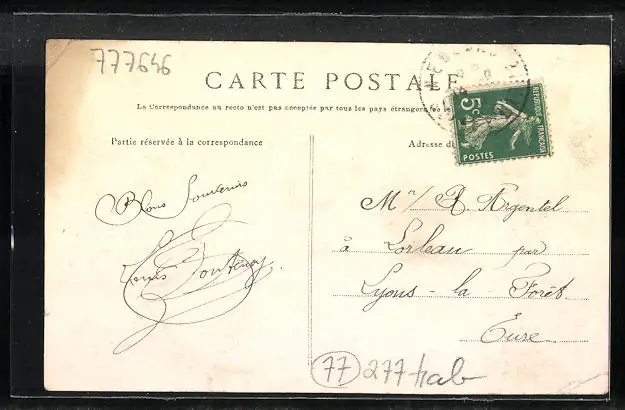 777646
CARTE POSTALE
La Correspondance au recto n'est pas acceptée par tous les pays étrangers
Partie réservée à la correspondance
Adresse du
5c
REPUBLIQUE FRANÇAISE
POSTES
Bons Souvenirs
Louis
Mr A. Argentel
à Lorleau par
Lyons-la-Forêt
Eure
77 277 hab